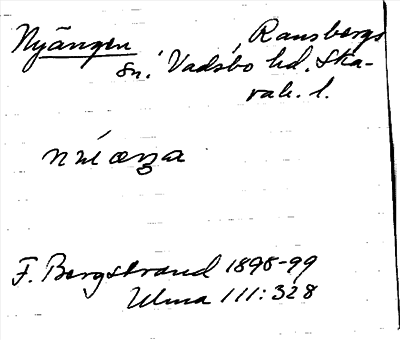 Nyängen Ransbergs
sn. Vadsbo hd. Ska-
rab. l.
F. Bergstrand 1898-99
Ulma 111:328